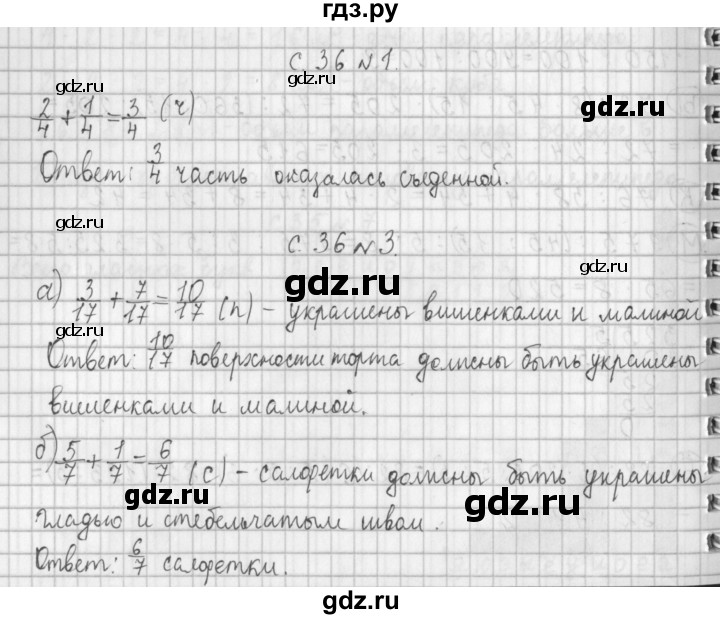 гдз.ру
с. 36 №1.
gdz.ru
gdz.ru
gdz.ru
2/4 + 1/4 = 3/4 (ч)
Ответ: 3/4 часть оказалась съеденной.
gdz.ru
gdz.ru
с. 36 №3.
gdz.ru
gdz.ru
а) 3/17 + 7/17 = 10/17 (п) – украшены вишенками и малиной
Ответ: 10/17 поверхности торта должны быть украшены
вишенками и малиной.
б) 5/7 + 1/7 = 6/7 (с) – салфетки должны быть украшены
gdz.ru
gdz.ru
гладью и стебельчатым швом.
Ответ: 6/7 салфетки.
gdz.ru
gdz.ru